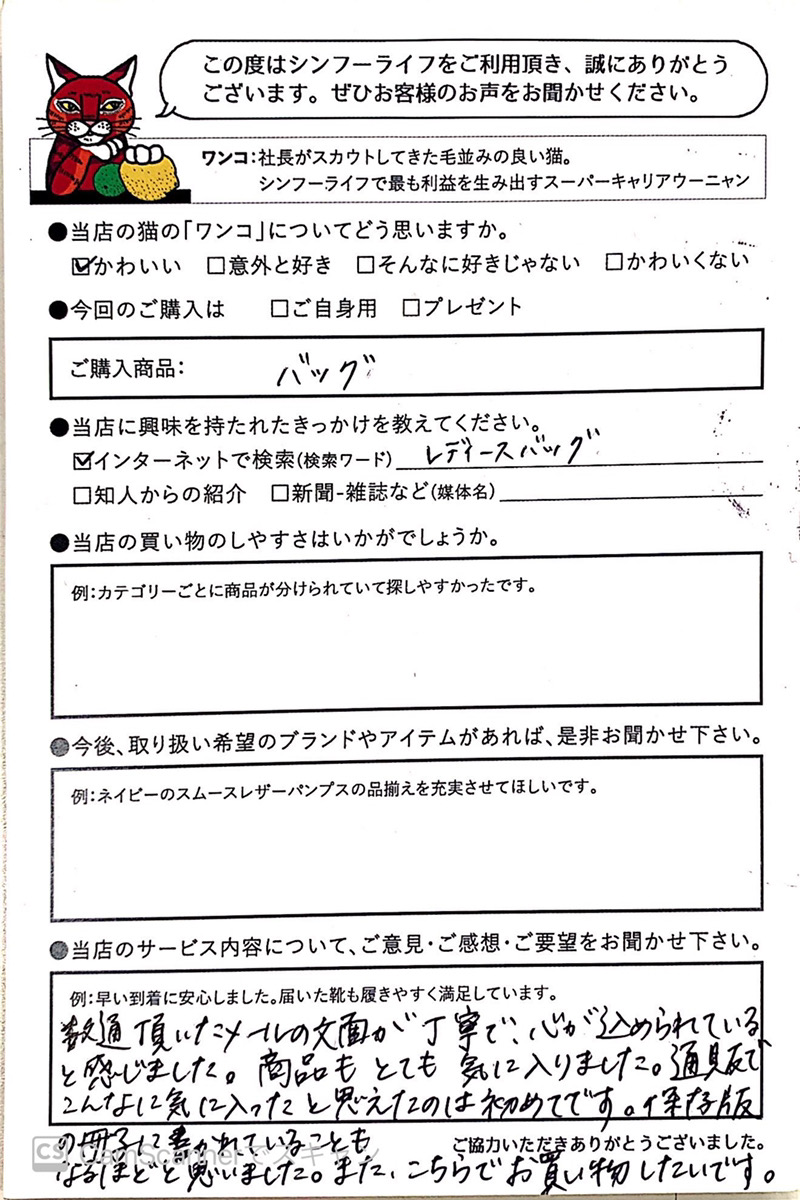 この度はシンフーライフをご利用頂き、誠にありがとう
ございます。ぜひお客様のお声をお聞かせください。
ワンコ:社長がスカウトしてきた毛並みの良い猫。
シンフーライフで最も利益を生み出すスーパーキャリアウーニャン
●当店の猫の「ワンコ」についてどう思いますか。
☑かわいい □意外と好き □そんなに好きじゃない □かわいくない
●今回のご購入は □ご自身用 □プレゼント
ご購入商品: バッグ
●当店に興味を持たれたきっかけを教えてください。
☑インターネットで検索(検索ワード) レディースバッグ
□知人からの紹介 □新聞-雑誌など(媒体名)
●当店の買い物のしやすさはいかがでしょうか。
例:カテゴリーごとに商品が分けられていて探しやすかったです。
●今後、取り扱い希望のブランドやアイテムがあれば、是非お聞かせ下さい。
例:ネイビーのスムースレザーパンプスの品揃えを充実させてほしいです。
●当店のサービス内容について、ご意見・ご感想・ご要望をお聞かせ下さい。
例:早い到着に安心しました。届いた靴も履きやすく満足しています。
数通頂いたメールの文面が丁寧で、心が込められている
と感じました。商品もとても気に入りました。通販で
こんなに気に入ったと思えたのは初めてです。保存版
の冊子に書かれていることも
ご協力いただきありがとうございました。
なるほどと思いました。また、こちらでお買い物したいです。
CS CamScannerでスキャン